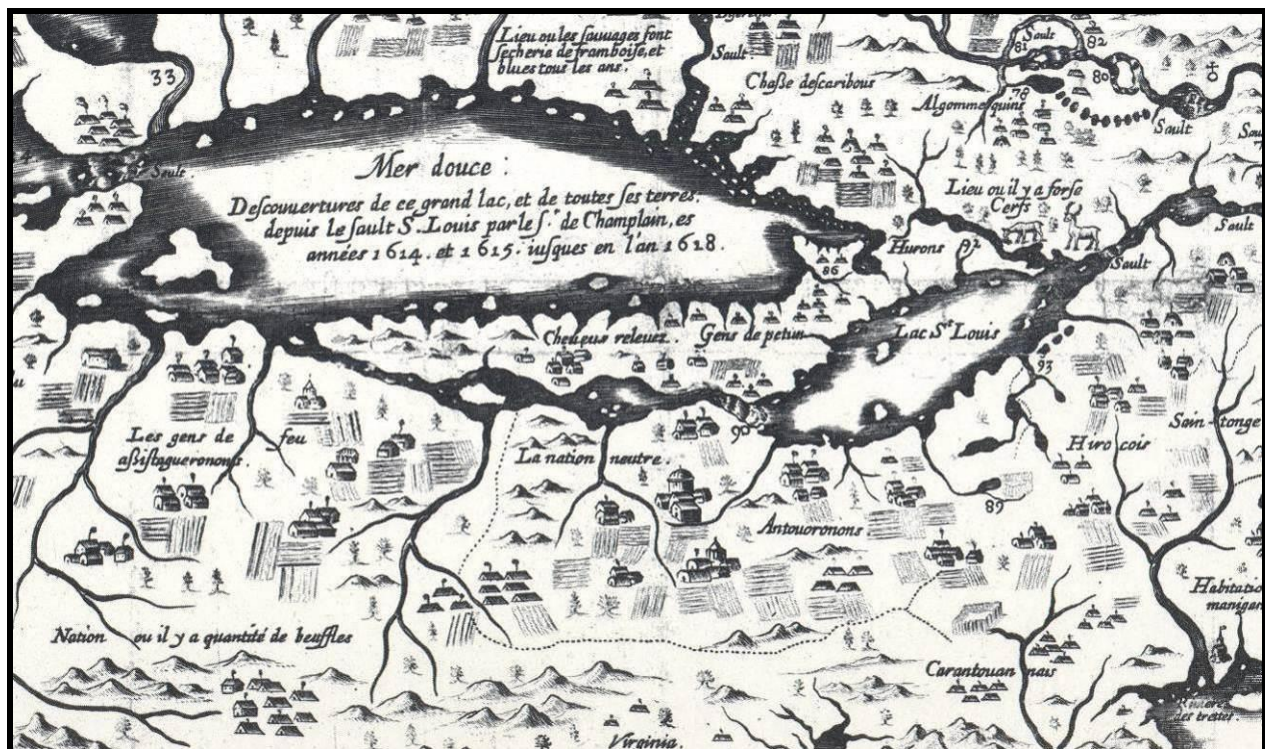 Lieu ou les sauuages font
secherie de framboise, et
blues tous les ans.
33
Sault
Chasse des caribous
Sault
81
82
80
78
Algommequins
Sault
Sault
Mer douce :
Descouuertures de ce grand lac, et de toutes ses terres.
depuis le sault S. Louis par le s.r de Champlain, es
années 1614. et 1615. iusques en l'an 1618.
Lieu ou il y a forse
Cerfs
Sault
Hurons
92
Sault
86
Cheueux releuez.
Gens de petun
Lac S.te Louis
93
90
Les gens de feu
asistagueronons.
La nation neutre.
Hirocois
Sain-tonge
89
Antouoronons
Habitatio
manigan
Nation ou il y a quantité de beuffles
Carantouannais
Riuiere
des trettes.
Virginia.